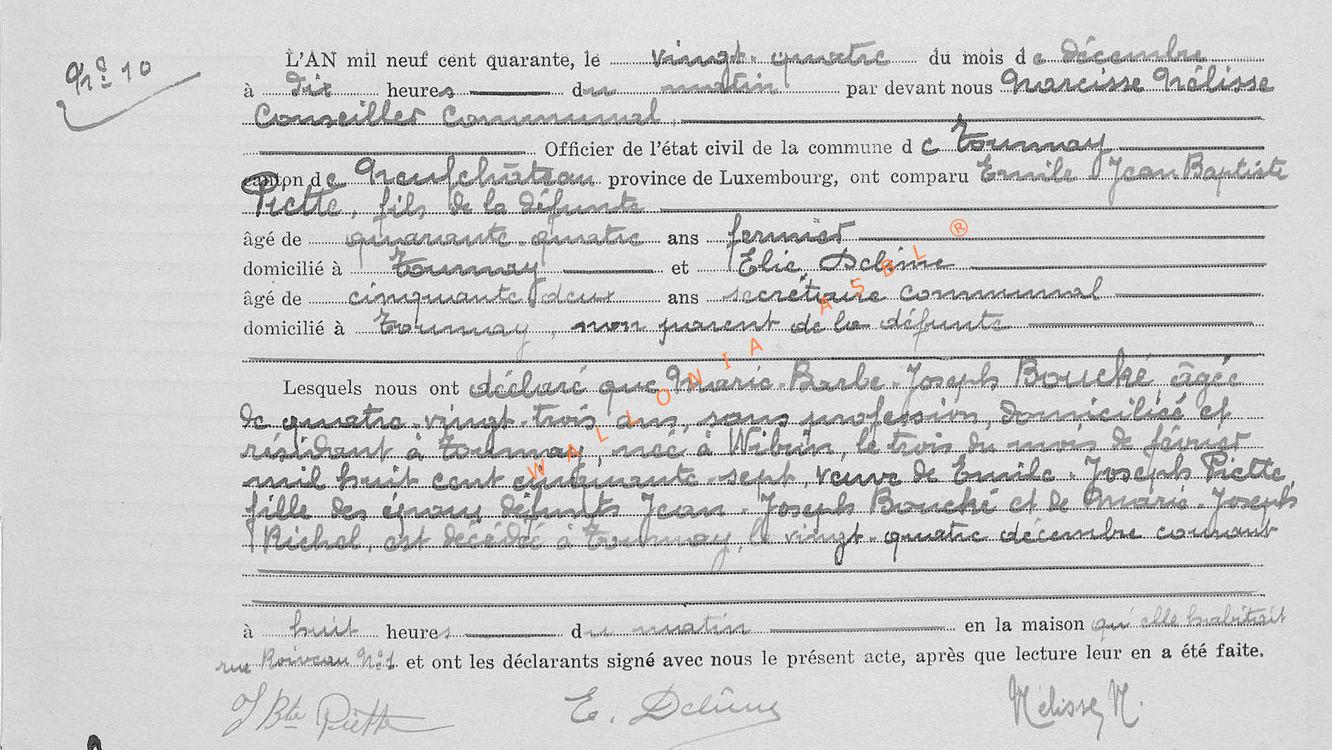 N° 10
L'AN mil neuf cent quarante, le vingt-quatre du mois de décembre
à dix heures du matin par devant nous Narcisse Nélisse
Conseiller Communal,
Officier de l'état civil de la commune de Tournay
canton de Neufchâteau province de Luxembourg, ont comparu Emile Jean Baptiste
Piette, fils de la défunte
âgé de quarante-quatre ans fermier
domicilié à Tournay et Elie Delime
âgé de cinquante deux ans secrétaire communal
domicilié à Tournay, non parent de la défunte
Lesquels nous ont déclaré que Marie-Barbe-Joseph Bouché, âgée
de quatre-vingt-trois ans, sans profession, domiciliée et
résidant à Tournay, née à Wibrin, le trois du mois de février
mil huit cent cinquante-sept, veuve de Emile-Joseph Piette
fille des époux défunts Jean-Joseph Bouché et de Marie-Joseph
Richel, est décédée à Tournay, le vingt-quatre décembre courant
à huit heures du matin en la maison qu'elle habitait
rue N° 1 et ont les déclarants signé avec nous le présent acte, après que lecture leur en a été faite.
J Bte Piette E. Delime Nélisse, N.
WALLONIA ASBL ®